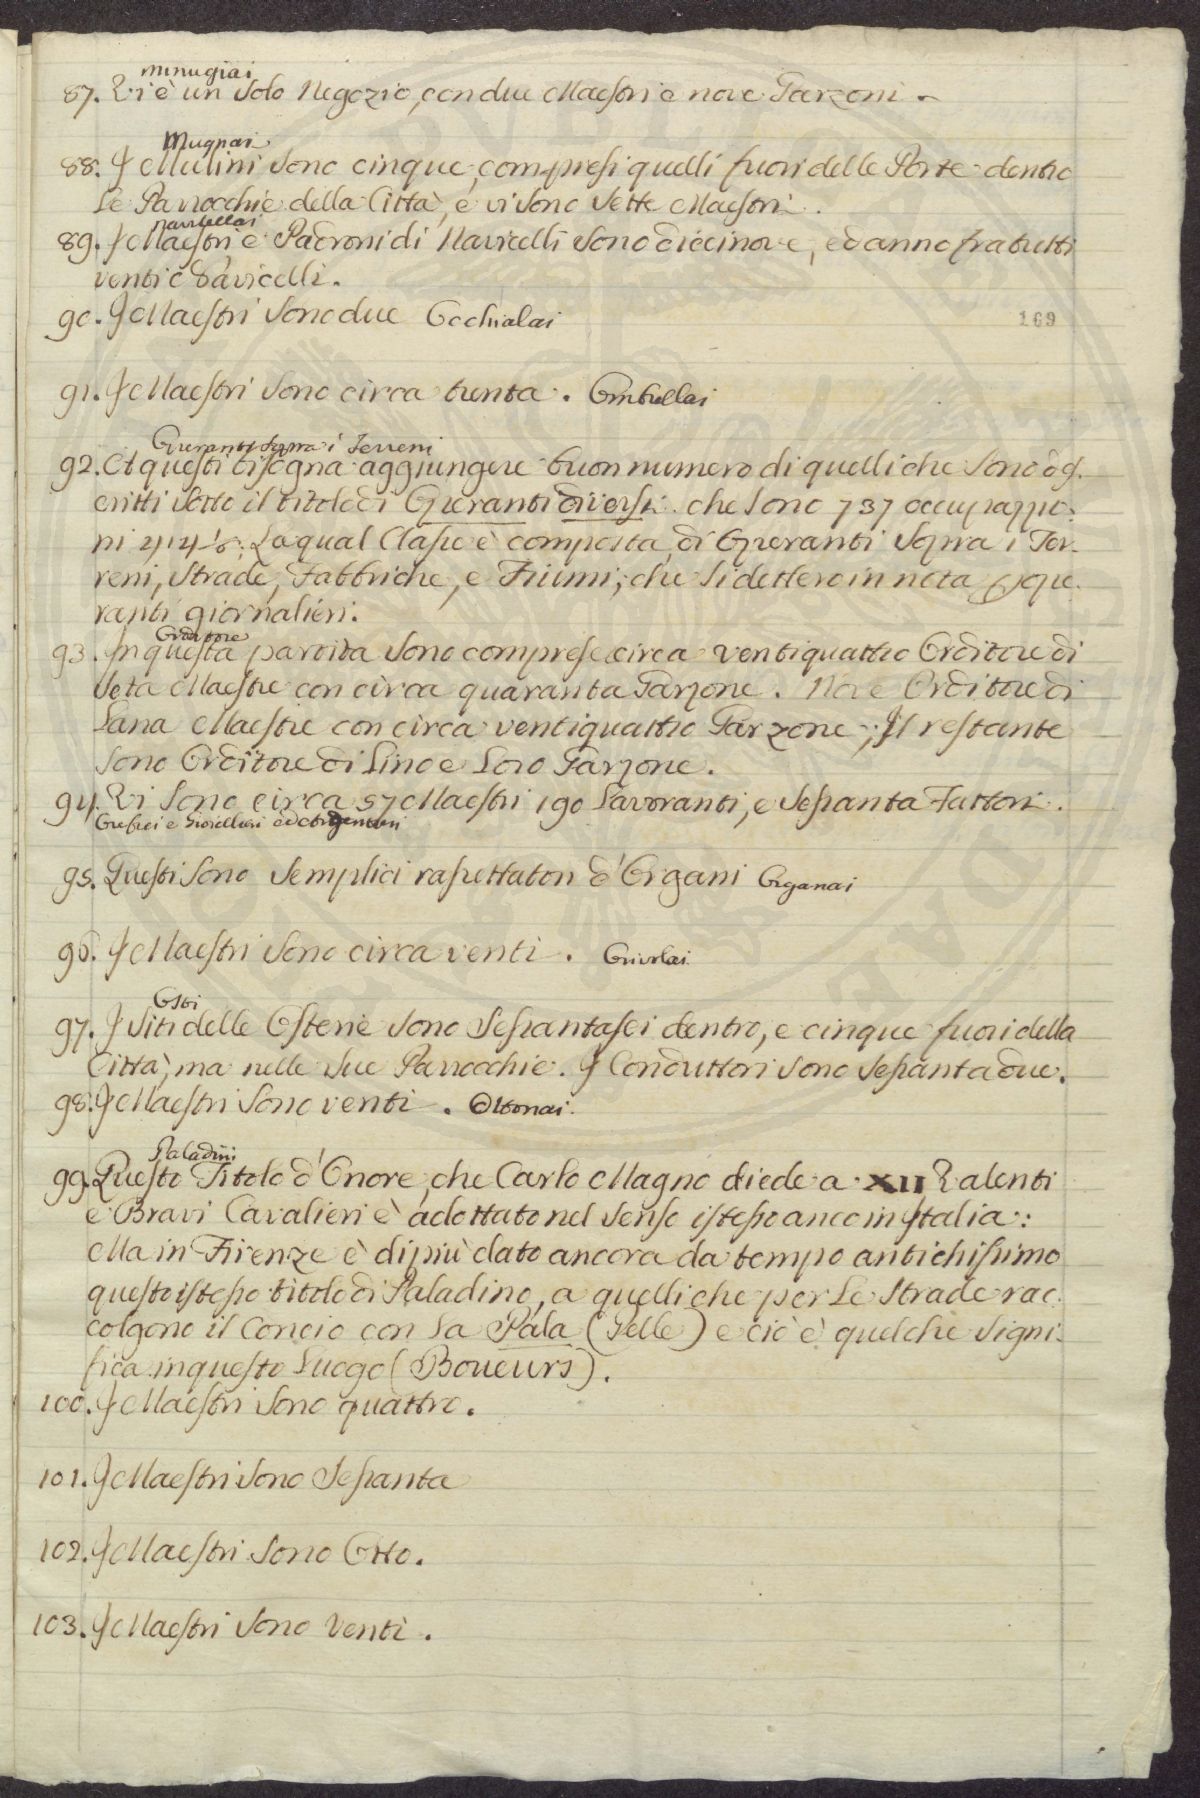 minugiai
87. Vi è un solo Negozio, con due Maestri e nove Garzoni.
Mugnai
88. I Mulini sono cinque, compresi quelli fuori delle Porte dentro
le Parrocchie della Città, e vi sono sette Maestri.
navicellai
89. I Maestri, e Padroni di Navicelli sono diecinove, ed anno fra tutti
venti Navicelli.
90. I Maestri sono due Occhialai
169
91. I Maestri sono circa trenta. Ombrellai
Operanti sopra i Terreni
92. A questi bisogna aggiungere buon numero di quelli che sono des-
critti sotto il titolo di Operanti diversi che sono 737 occupazio-
ni; La qual Classe è composta di Operanti sopra i Ter-
reni, Strade, Fabbriche, e Fiumi; che si dettero in nota ope-
ranti giornalieri.
Orditore
93. In questa partita sono comprese circa ventiquattro Orditore di
Seta Maestre con circa quaranta Garzone. Nove Orditore di
Lana Maestre con circa ventiquattro Garzone; Il restante
sono Orditore di Lino e Loro Garzone.
94. Vi sono circa 57 Maestri 190 Lavoranti, e sessanta Fattori.
Orefici e Gioiellieri ed Argentieri
95. Questi sono semplici rassettatori d'Organi Organai
96. I Maestri sono circa venti. Orivolai
Osti
97. I siti delle Osterie sono sessantasei dentro, e cinque fuori della
Città, ma nelle sue Parrocchie. I Conduttori sono sessantadue.
98. I Maestri sono venti. Ottonai.
Paladini
99. Questo Titolo d'Onore, che Carlo Magno diede a XII Valenti
e Bravi Cavalieri è adottato nel senso istesso anco in Italia:
Ma in Firenze è di più dato ancora da tempo antichissimo
questo istesso titolo di Paladino, a quelli che per le Strade rac-
colgono il Concio con la Pala (Pelle) e ciò è quel che signi-
fica in questo Luogo (Boueurs).
100. I Maestri sono quattro.
101. I Maestri sono Sessanta
102. I Maestri sono Otto.
103. I Maestri sono Venti.